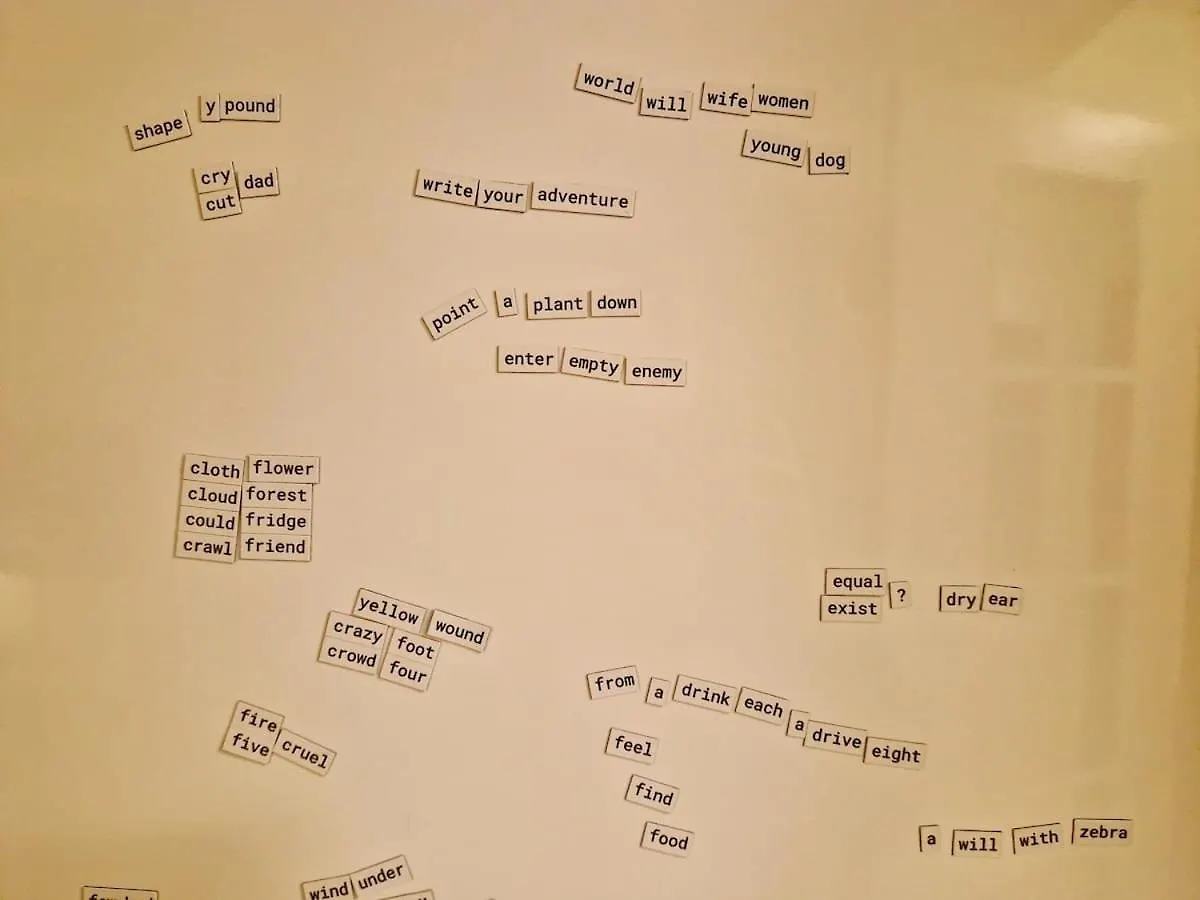 world will wife women
y pound
shape
young dog
cry dad
cut
write your adventure
point a plant down
enter empty enemy
cloth flower
cloud forest
could fridge
crawl friend
equal
exist ? dry ear
yellow wound
crazy foot
crowd four
from a drink each a drive eight
fire
five cruel
feel
find
food
a will with zebra
wind under